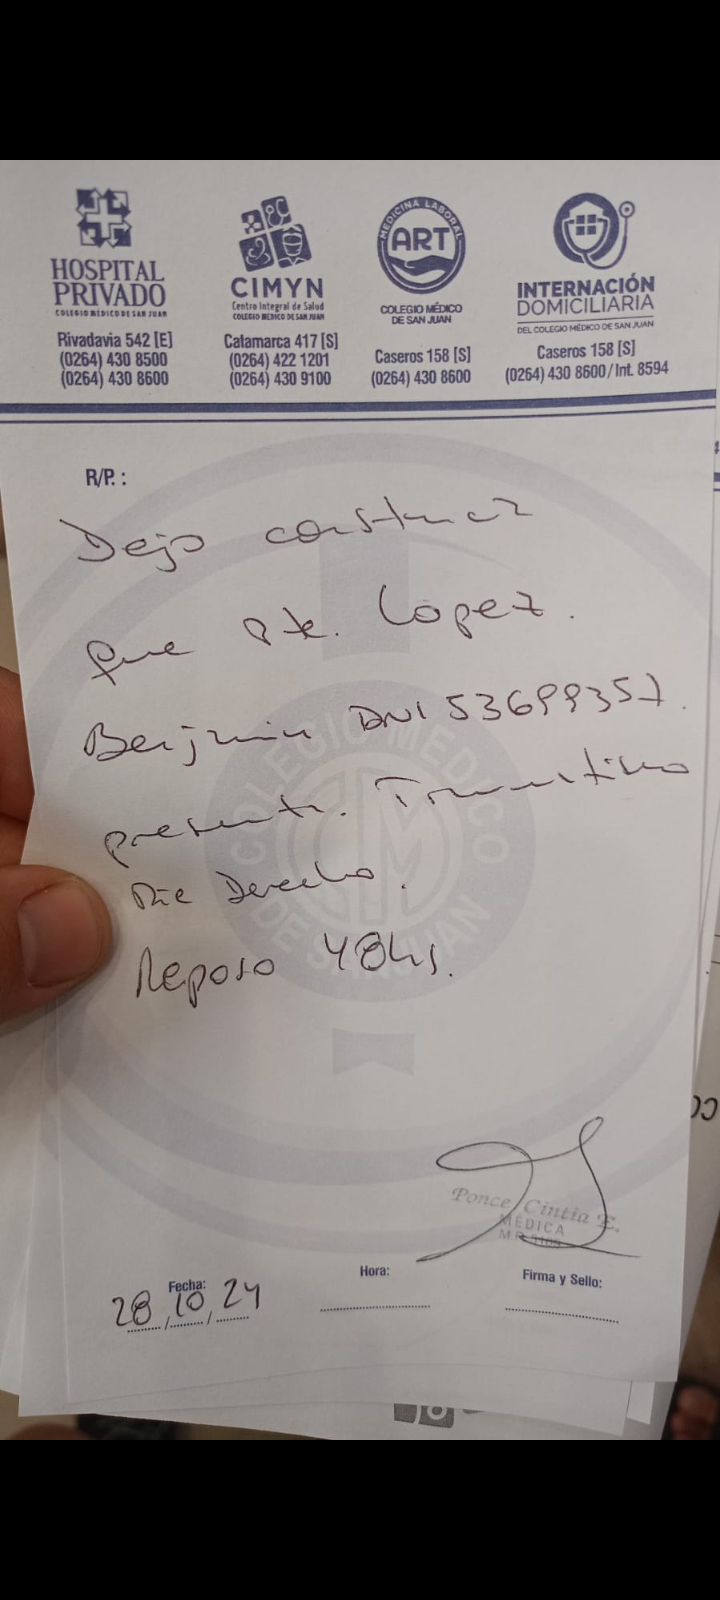 HOSPITAL
PRIVADO
COLEGIO MÉDICO DE SAN JUAN
Rivadavia 542 [E]
(0264) 430 8500
(0264) 430 8600
CIMYN
Centro Integral de Salud
COLEGIO MÉDICO DE SAN JUAN
Catamarca 417 [S]
(0264) 422 1201
(0264) 430 9100
MEDICINA LABORAL
ART
COLEGIO MÉDICO
DE SAN JUAN
Caseros 158 [S]
(0264) 430 8600
INTERNACIÓN
DOMICILIARIA
DEL COLEGIO MÉDICO DE SAN JUAN
Caseros 158 [S]
(0264) 430 8600/Int. 8594
R/P.:
Dejo constancia
que Pte. Lopez.
Benjamin DNI 53699357.
presenta. Traumatismo
Pie Derecho.
Reposo 48hs.
COLEGIO MEDICO
DE SAN JUAN
Ponce Cintia E.
MÉDICA
Fecha:
28/10/24
Hora:
Firma y Sello: